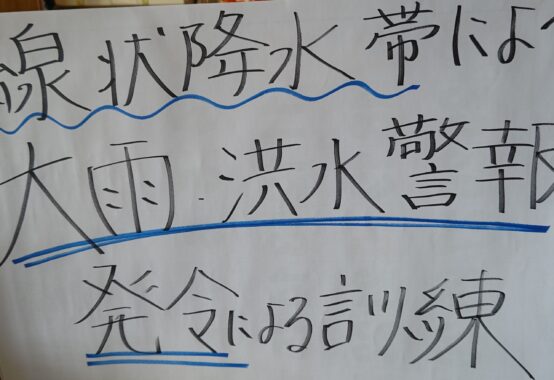 線状降水帯によ
大雨・洪水警報
発令による訓練